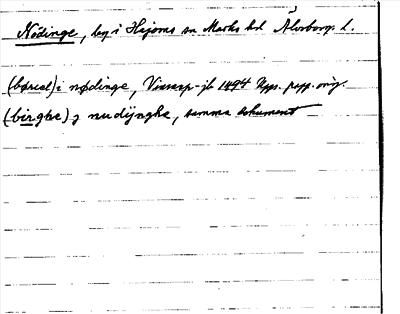 Nödinge, by i Hajoms sn Marks hd Älvsborgs l.
(børiel) i nødinge, Vissvep-jb 1494 Upps. papp. orig.
(birghe) j nudijnghe, samma dokument